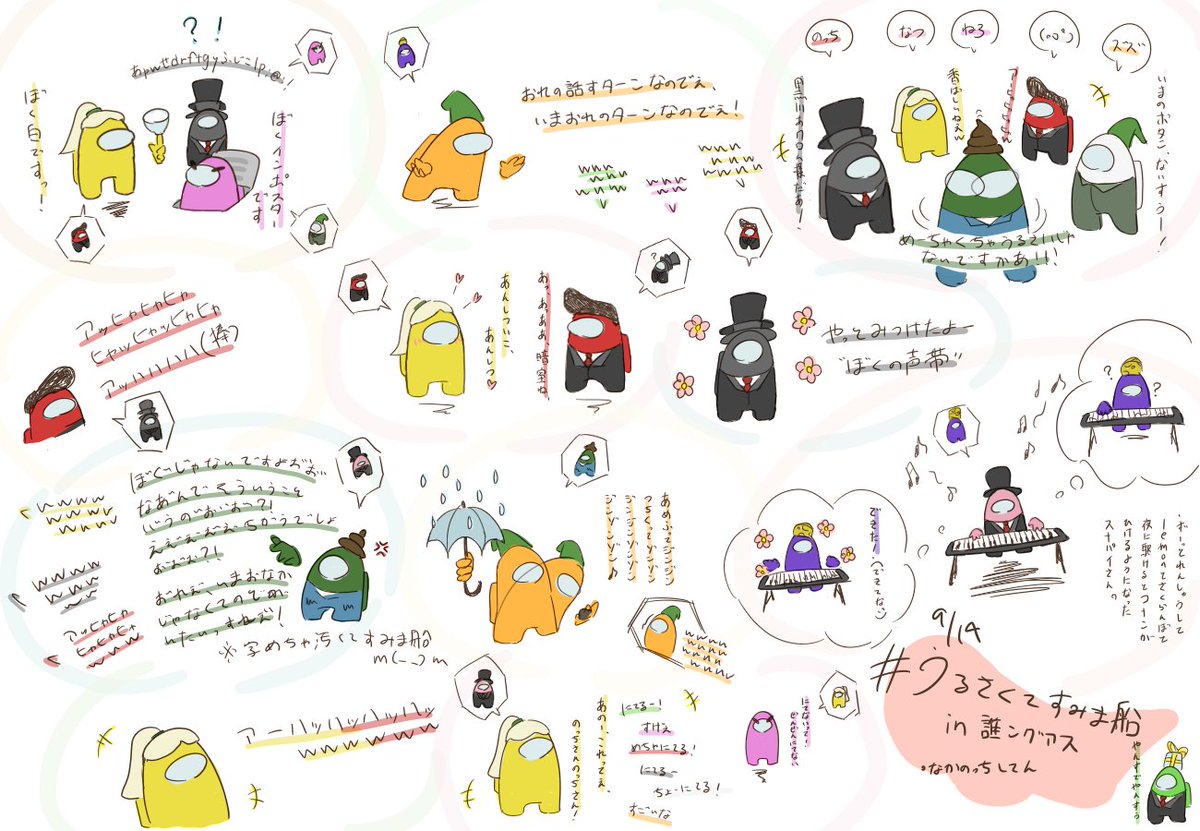 ?!
あpwせdrftgyふじこlp;@!
ぼく白ですっ!
ぼくインポスター
です
おれの話すターンなのでえ、
いまおれのターンなのでえ!
wwww
wwww
www
wwww
www
wwww
wwww
www
のっち
なつ
ねろ
ズズ
香ばしいねぇん
いまのボタン、ないすぅー!
めーちゃくちゃうるさいじゃ
ないですかあ!!!
アッヒャヒャヒャ
ヒャッヒャッヒャヒャ
アッハハハハ(棒)
あんしついこ、
あんしつ♥
あっ、あぁあ、暗室ね
やっとみつけたよー
"ぼくの声帯"
ぼくじゃないですよおぉお
なあんでそういうこと
いうのぉおお?!
ええええぇーちがうでしょ
おおお?!
おれえ、いまおなか
じゃなくてのどか
いたいっすねえ!
wwww
wwww
www
wwww
www
www
アッヒャヒャ
ヒャヒャヒャ
www
※字めちゃ汚くてすみま船
m(_ _)m
あめふってジンジン
つらくってゾンゾン
ジンジンジンジン
ジンゾンゾンゾン♪
wwww
wwww
wwww
www
できた!(できてない)
? ?
がーってれんしゅうして
1emoでさくらんぼで
夜に駆けるとファミチキンが
スナパイさんの
アーハッハッハッハッ
wwwwwww
あのーこれってぇ、
のっちさんのっちさん!
にてるー!
すげえ
めちゃにてる!
にてるー
ちょーにてる!
すごいな
にてないって!
ぜんぜんにてない
9/14
#うるさくてすみま船
in 誰ングアス
・なかのっちしてん
やんすでやんすぅ